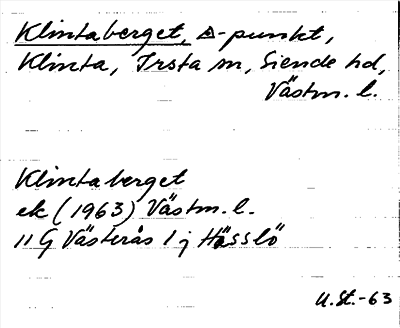 Klintaberget, △-punkt,
Klinta, Irsta sn, Siende hd,
Västm. l.
Klintaberget
ek (1963) Västm. l.
11 G Västerås 1 j Hässlö
U.St.-63